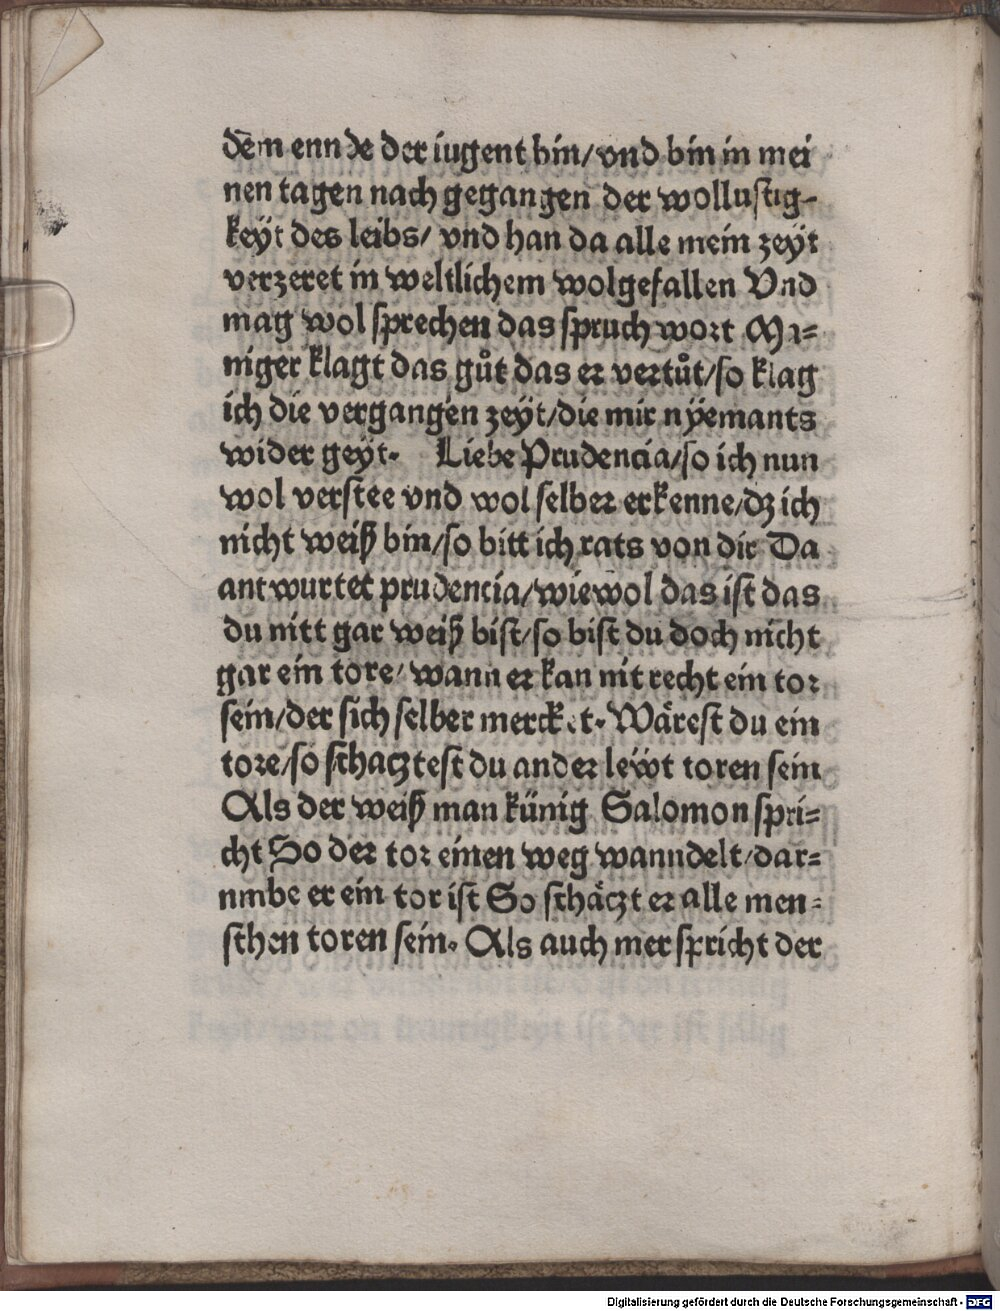 dem ennde der iugent bin/vnd bin in mei
nen tagen nach gegangen der wollustig-
keÿt des leibs/ vnd han da alle mein zeÿt
verzeret in weltlichem wolgefallen Vnd
mag wol sprechen das spruch wort Mi=
niger klagt das gůt das er vertůt/so klag
ich die vergangen zeÿt/die mir nÿemants
wider geÿt. Liebe Prudencia/so ich nun
wol verstee vnd wol selber erkenne/dz ich
nicht weiß bin/so bitt ich rats von dir Da
antwurtet prudencia/wiewol das ist das
du nitt gar weiß bist/so bist du doch nicht
gar ein tore/wann er kan nit recht ein tor
sein/der sich selber mercket. Wärest du ein
tore/so schacztest du ander leẅt toren sein
Als der weiß man künig Salomon spri=
cht So der tor einen weg wanndelt/dar=
nmbe er ein tor ist So schäczt er alle men=
schen toren sein. Als auch mer spricht der
Digitalisierung gefördert durch die Deutsche Forschungsgemeinschaft - DFG